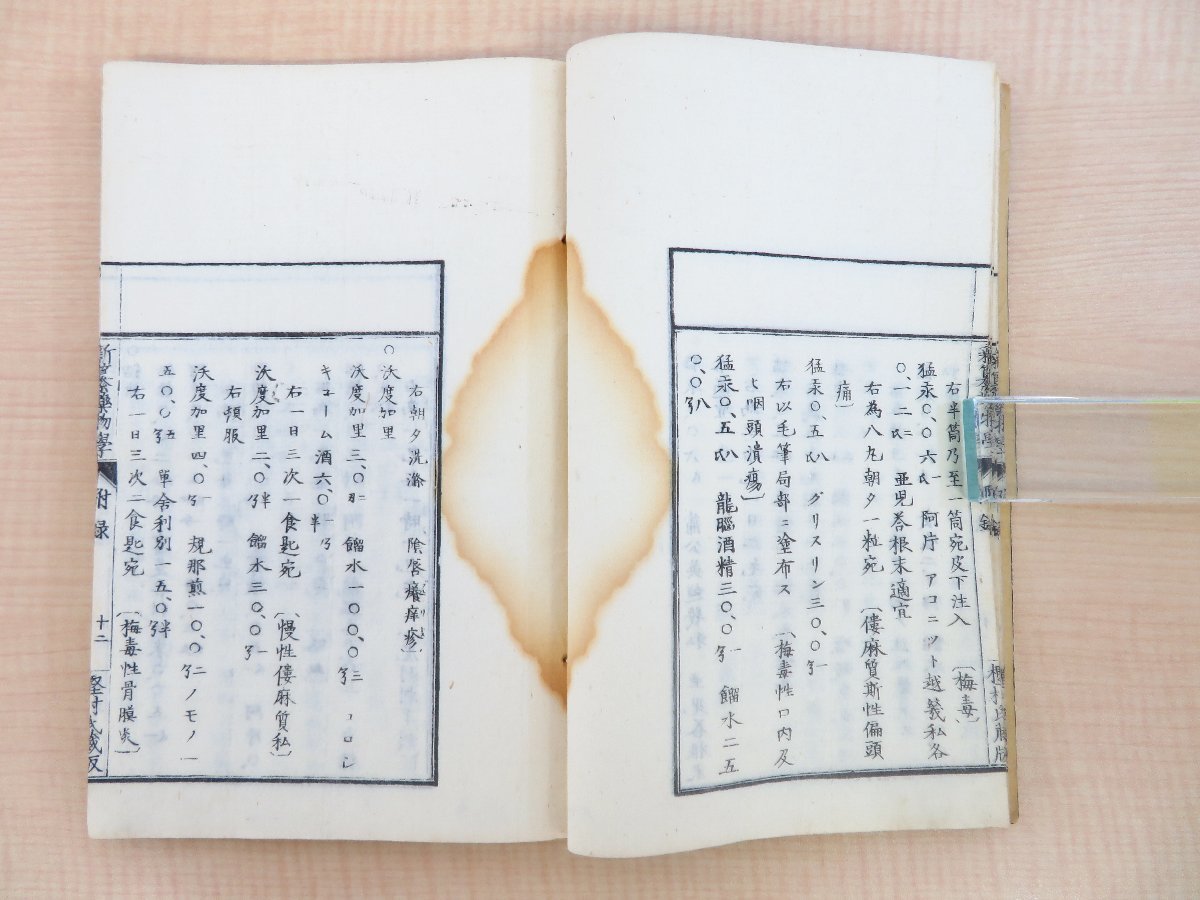 右半筒乃至一筒宛皮下注入 〔梅毒〕
猛汞〇、〇六 阿片 アコニット越幾私各
〇、一二 亜児答根末適宜
右為八丸朝夕一粒宛 〔僂麻質斯性偏頭
痛〕
猛汞〇、五 グリスリン三〇、〇
右以毛筆局部ニ塗布ス 〔梅毒性口内及
ヒ咽頭潰瘍〕
猛汞〇、五 龍脳酒精三〇、〇 餾水二五
〇、〇
右朝夕洗滌一時 陰唇癢痒疹〕
〇沃度加里
沃度加里三、〇 餾水一〇〇、〇 コロシ
キューム酒六、〇
右一日三次一食匙宛 〔慢性僂麻質私〕
沃度加里二、〇 餾水三〇、〇
右頓服
沃度加里四、〇 規那煎一〇、〇ノモノ
五〇、〇 単舎利別一五、〇
右一日三次二食匙宛 〔梅毒性骨膜炎〕
附録 十二